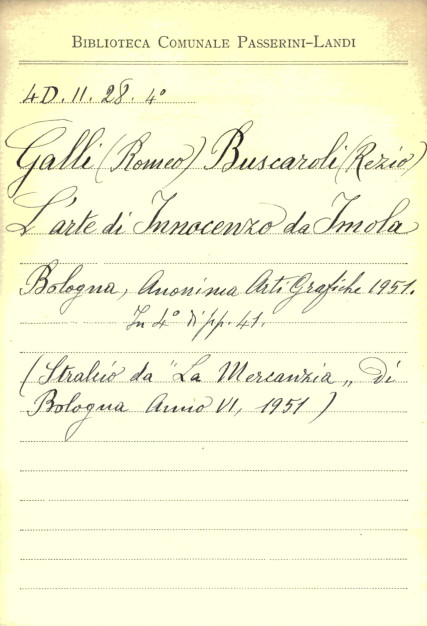 BIBLIOTECA COMUNALE PASSERINI-LANDI
4D. II. 28. 4º
Galli (Romeo) Buscaroli (Rezio)
L'arte di Innocenzo da Imola
Bologna, Anonima Arti Grafiche 1951.
In 4º di pp. 41.
(Stralcio da "La Mercanzia„ di
Bologna Anno VI, 1951)